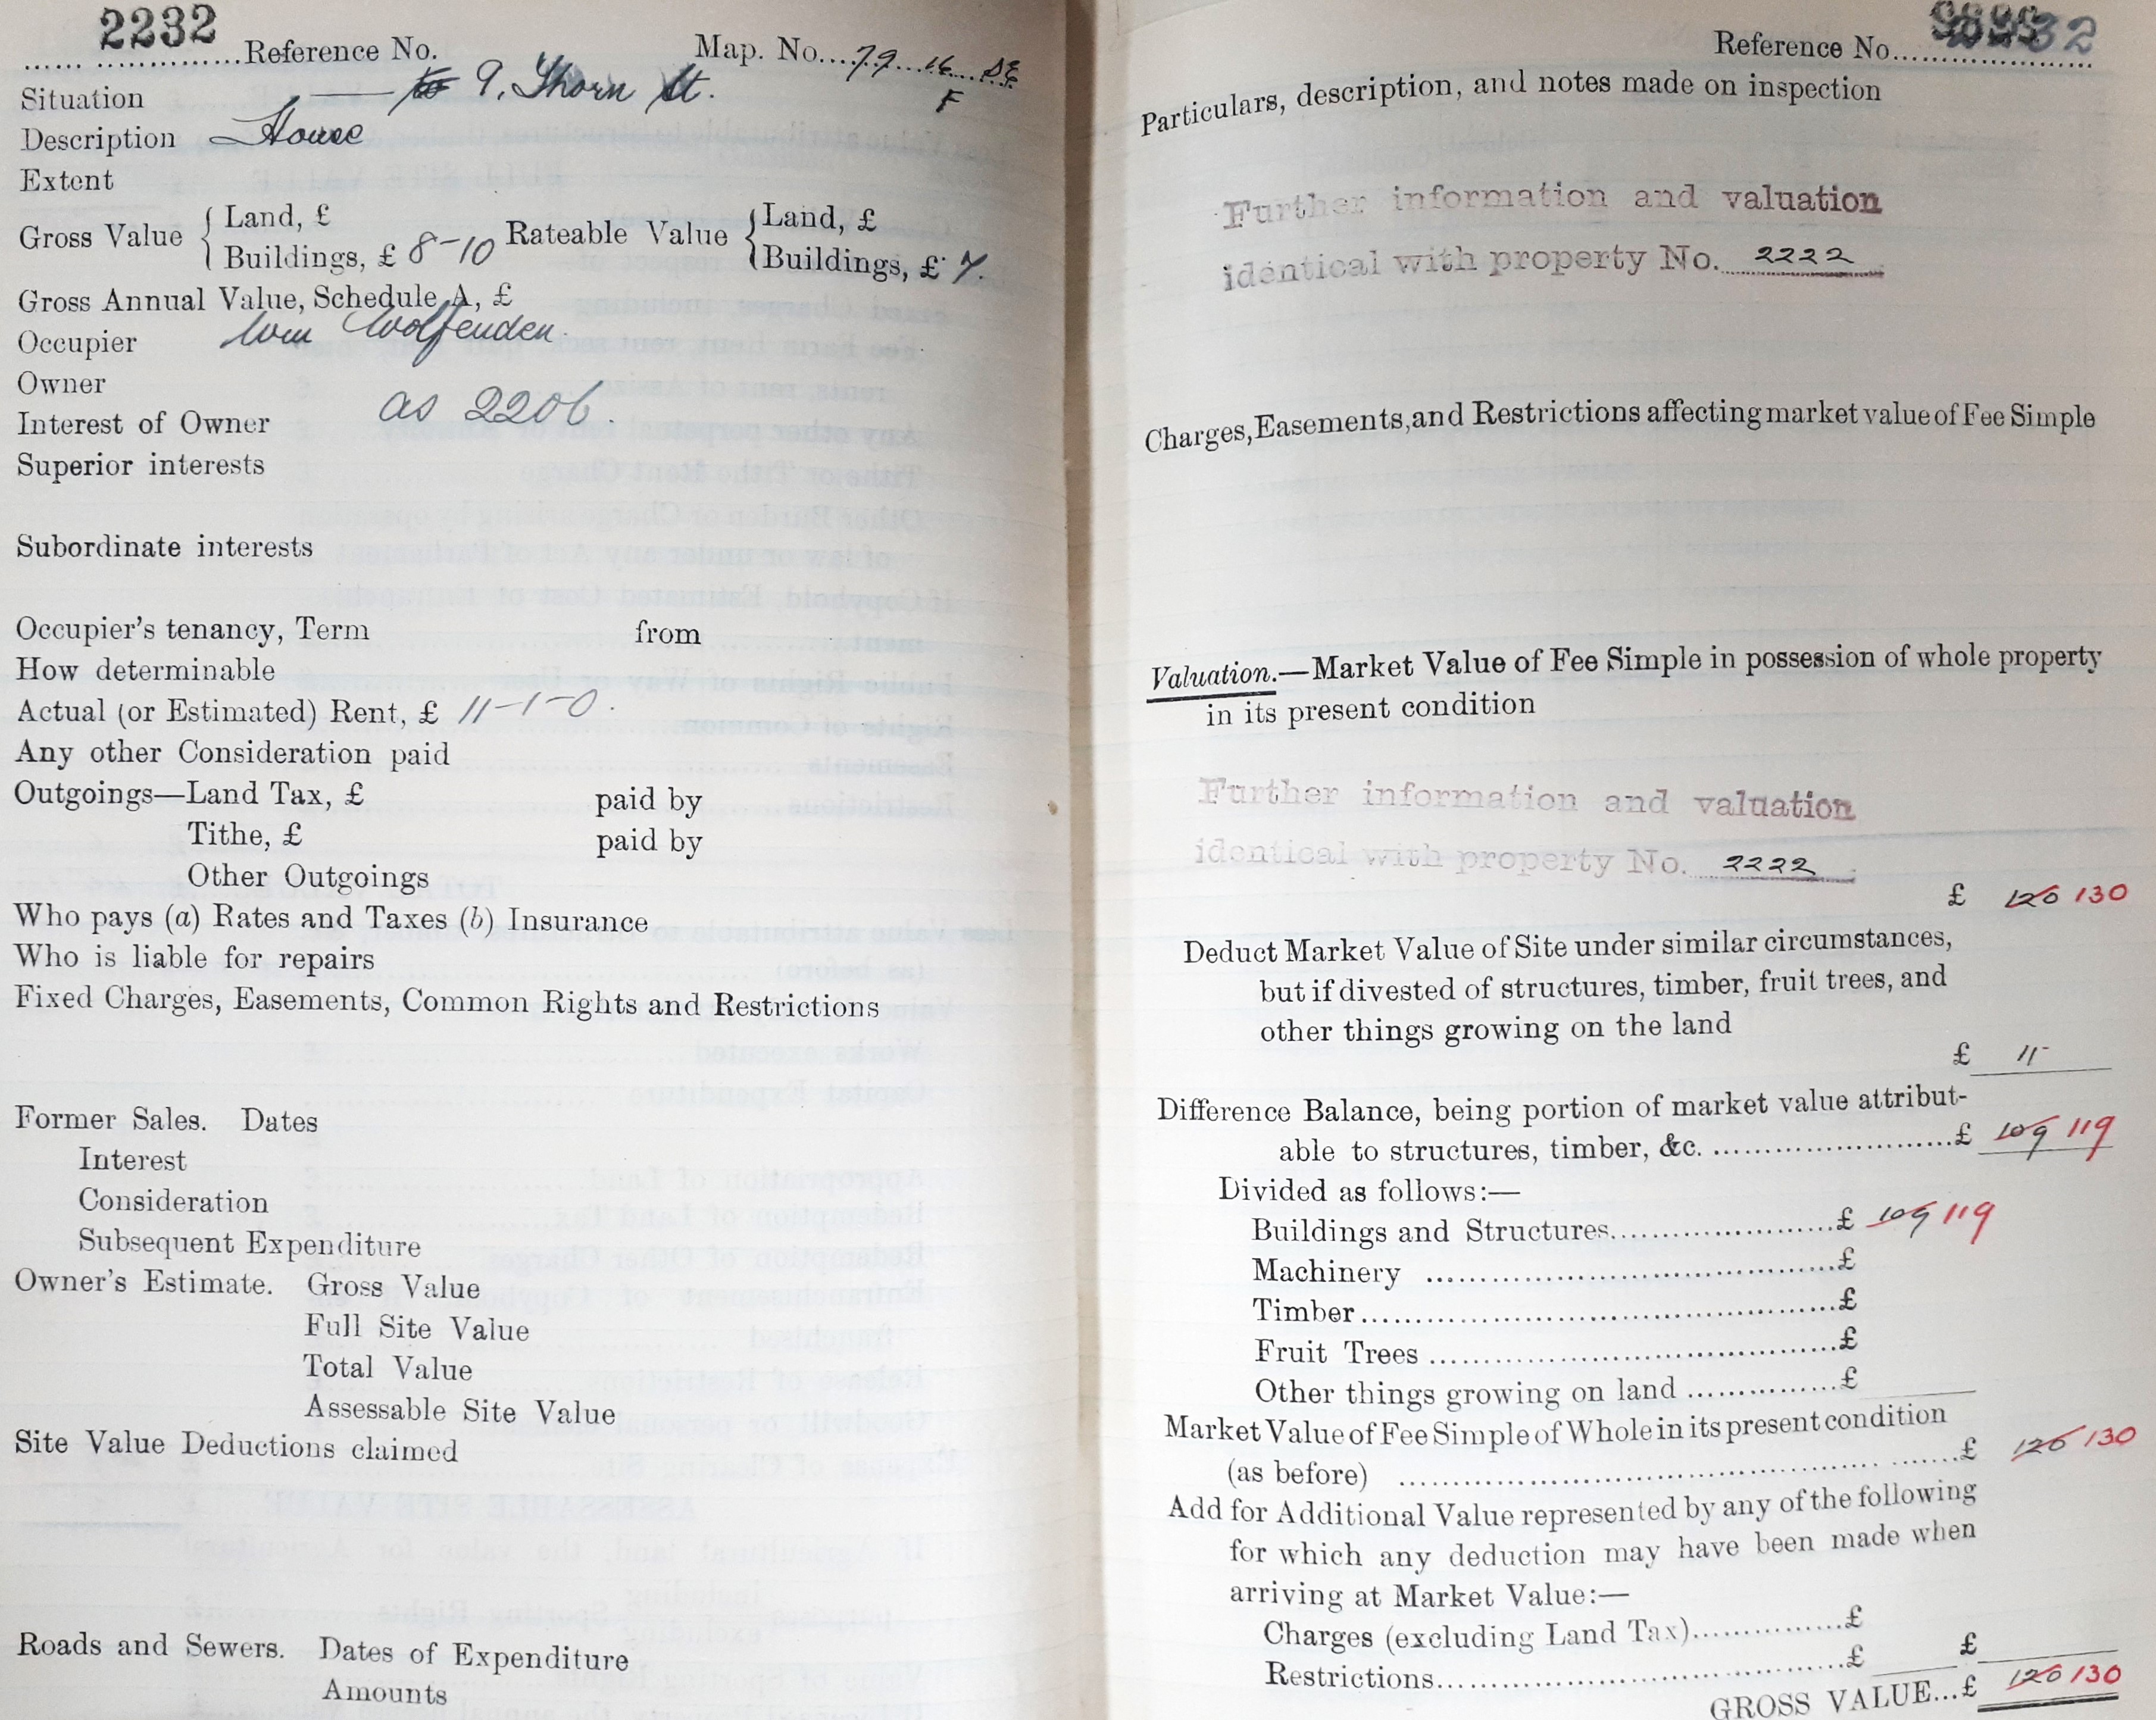 2232
...... ...............Reference No.
Map. No....79...16...SE
F
Situation — 9, Thorn St.
Description House
Extent
Gross Value { Land, £
Buildings, £ 8-10
Rateable Value { Land, £
Buildings, £ 7.
Gross Annual Value, Schedule A, £
Occupier Wm Wolfenden.
Owner
Interest of Owner as 2206.
Superior interests
Subordinate interests
Occupier's tenancy, Term from
How determinable
Actual (or Estimated) Rent, £ 11-1-0.
Any other Consideration paid
Outgoings—Land Tax, £ paid by
Tithe, £ paid by
Other Outgoings
Who pays (a) Rates and Taxes (b) Insurance
Who is liable for repairs
Fixed Charges, Easements, Common Rights and Restrictions
Former Sales. Dates
Interest
Consideration
Subsequent Expenditure
Owner's Estimate. Gross Value
Full Site Value
Total Value
Assessable Site Value
Site Value Deductions claimed
Roads and Sewers. Dates of Expenditure
Amounts
Reference No.
Particulars, description, and notes made on inspection
Further information and valuation
identical with property No. 2222
Charges, Easements, and Restrictions affecting market value of Fee Simple
Valuation.—Market Value of Fee Simple in possession of whole property
in its present condition
Further information and valuation
identical with property No. 2222
£ 120 130
Deduct Market Value of Site under similar circumstances,
but if divested of structures, timber, fruit trees, and
other things growing on the land
£ 11
Difference Balance, being portion of market value attribut-
able to structures, timber, &c. £ 109 119
Divided as follows:—
Buildings and Structures £ 109 119
Machinery £
Timber £
Fruit Trees £
Other things growing on land £
Market Value of Fee Simple of Whole in its present condition
(as before) £ 120 130
Add for Additional Value represented by any of the following
for which any deduction may have been made when
arriving at Market Value:—
Charges (excluding Land Tax) £
Restrictions £ £
GROSS VALUE...£ 120 130